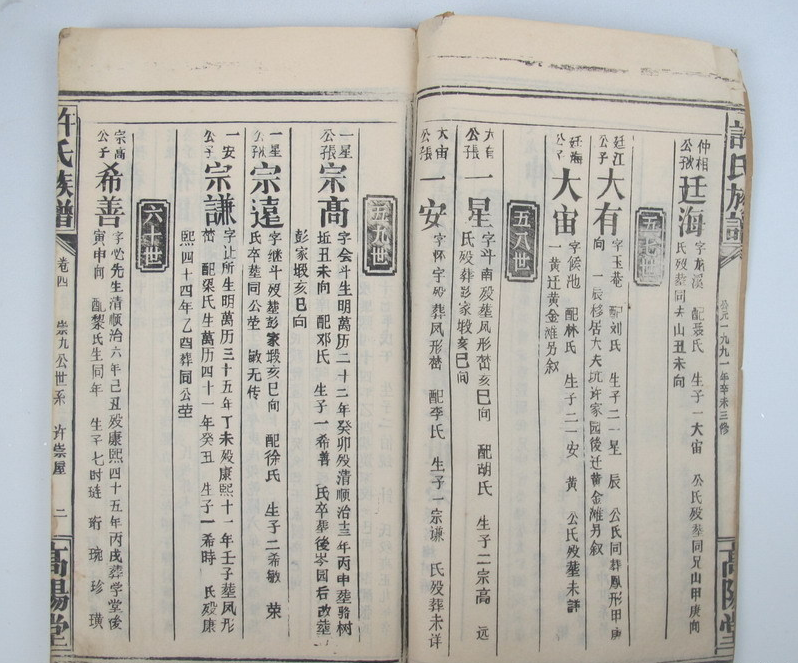 許氏族譜
公元一九九一年辛未三修
高陽堂
仲相公孫廷海
字龙溪 配聂氏 生子一大宙 公氏殁葬同兄山甲庚向
氏殁葬同夫山丑未向
五七世
廷江公子大有
字玉菴 配刘氏 生子二一星 辰 公氏同葬鳳形甲庚
向 一辰移居大夫坑许家园後迁黄金滩另叙
廷海公子大宙
字候池 配林氏 生子二一安 黄 公氏殁葬未詳
一黄迁黄金滩另叙
五八世
大有公子一星
字斗南殁葬凤形嵆亥巳向 配胡氏 生子二宗高 远
氏殁葬彭家塅亥巳向
大宙公子一安
字怀宇殁葬凤形嵆 配李氏 生子一宗谦 氏殁葬未详
五九世
一星公子宗高
字会斗生明萬历二十二年癸卯殁清順治十三年丙申葬骆树
坵丑未向 配邓氏 生子一希善 氏卒葬後岑园后改葬
彭家塅亥巳向
一星公子宗遠
字继斗殁葬彭家塅亥巳向 配徐氏 生子二希敏 荣
氏卒葬同公茔 敏无传
一安公子宗謙
字让所生明萬历三十五年丁未殁康熙十一年壬子葬凤形
嵆 配梁氏生萬历四十一年癸丑 生子一希時 氏殁康
熙四十四年乙酉葬同公茔
六十世
宗高公子希善
字 先生清顺治六年己丑殁康熙四十五年丙戌葬学堂後
寅申向 配黎氏生同年 生子七时琏 珩 琬 珍 璜
許氏族譜
卷四
崇九公世系
许崇屋
二
高陽堂